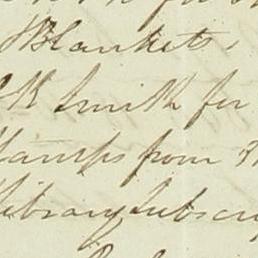 Blankets,
Smith for
Stamps from
Library Subscri